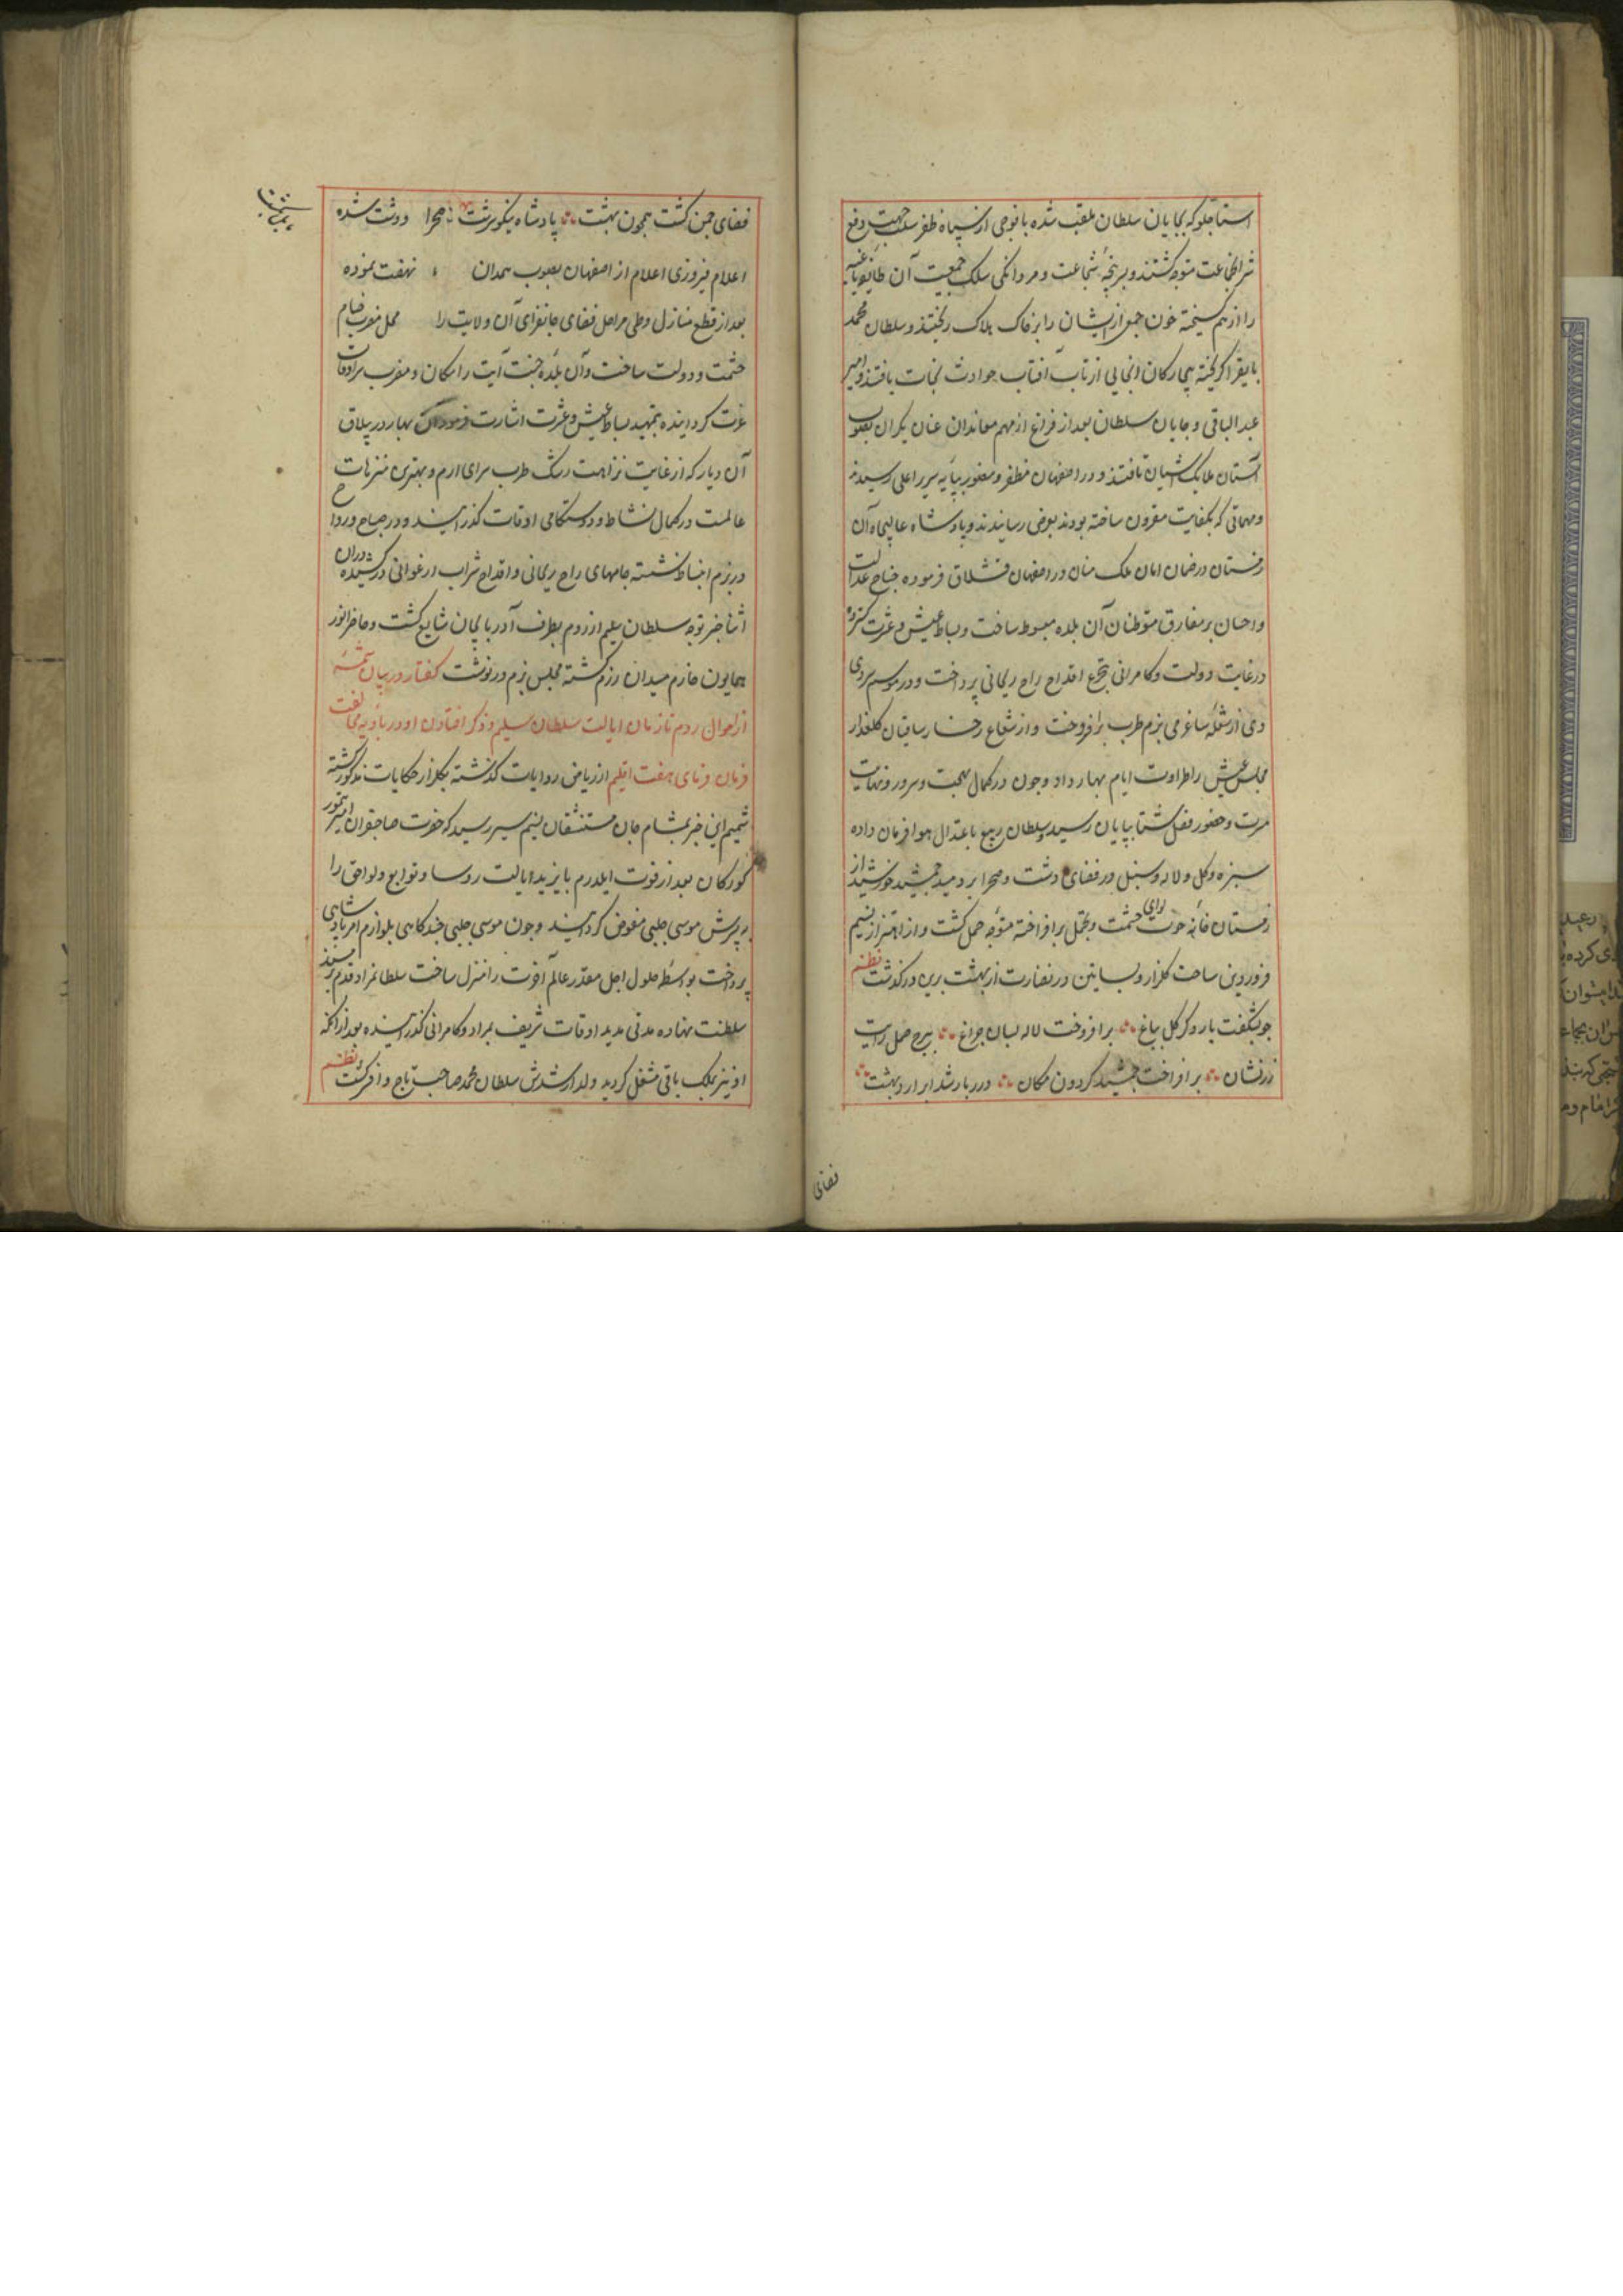 استاجلو که بچایان سلطان ملقب شده با فوجی از سپاه ظفر سلب جهت دفع
شر آنجماعت متوجه گشتند و بسرپنجهٔ شجاعت و مردانگی سلک جمعیت آن طایفه باغیه
را از هم کسیخته خون جمعی از ایشان را بر خاک هلاک ریختند و سلطان محمد
بایقرا کریخته از تاب آفتاب حوادث نجات یافتند و امیر
عبد الباقی و چایان سلطان بعد از فراغ از مهم معاندان عنان یکران بصوب
آستان ملایک آشیان تافتند و در اصفهان مظفر و منصور بپایه سریر اعلی رسیدند
و مهماتی که بکفایت مقرون ساخته بودند بعرض رسانیدند و پادشاه عالیجاه آن
زمستان در ضمان امان ملک منان در اصفهان قشلاق فرموده جناح عدالت
و احسان بر مفارق متوطنان آن بلده مبسوط ساخت و بساط عیش و عشرت کسترده
در غایت دولت و کامرانی بتجرع اقداح راح ریحانی پرداخت و در موسم سردی
دی از شعلهٔ ساغر می بزم طرب برافروخت و از شعاع رخسار ساقیان کلعذار
مجلس عیش را طراوت ایام بهار داد و چون در کمال بهجت و سرور و نهایت
مسرت و حضور فصل شتا بپایان رسید و سلطان ربیع باعتدال هوا فرمان داده
سبزه و کل و لاله و سنبل در فضای دشت و صحرا بردمید جمشید خورشید از
زمستان خانه حوت لوای حشمت و تجمل برافراخته متوجه حمل کشت و از اهتزاز نسیم
فروردین ساحت کلزار و بساتین در نضارت از بهشت برین درکذشت نظم
چو بشکفت بار دکر کل بباغ برافروخت لاله بسان چراغ ببرج حمل رایت
زرنشان برافراخت جمشید کردون مکان درربار شد ابر اردیبهشت
فضای
فضای چمن کشت همچون بهشت پادشاه نیکو سرشت صحرا و دشت شده
اعلام فیروزی اعلام از اصفهان بصوب همدان نهضت نموده
بعد از قطع منازل و طی مراحل فضای جانفزای آن ولایت را محل نصب خیام
حشمت و دولت ساخت و آن بلده جنت آیت را مکان و مضرب سرادقات
عزت کردانیده بتمهید بساط عیش و عشرت اشارت فرمود و آن بهار در ییلاق
آن دیار که از غایت نزاهت رشک طرب سرای ارم و بهترین متنزهات
عالمست در کمال نشاط و دوستکامی اوقات کذرانید و در صباح و رواح
در بزم انبساط نشسته جامهای راح ریحانی و اقداح شراب ارغوانی درکشیده در آن
اثنا خبر توجه سلطان سلیم از روم بطرف آذربایجان شایع کشت و خاطر انور
همایون عازم میدان رزم کشته مجلس بزم درنوشت کفتار در بیان شمهٔ
از احوال روم تا زمان ایالت سلطان سلیم و ذکر افتادن او در بادیه مخالفت
فرمان فرمای هفت اقلیم از ریاض روایات کذشته بکلزار حکایات مذکور کشته
شمیم این خبر بمشام جان مستنشقان نسیم سیر رسید که حضرت صاحبقران امیر تیمور
کورکان بعد از فوت ایلدرم بایزید ایالت روم و توابع و لواحق را
بپسرش موسی چلبی مفوض کردانید و چون موسی چلبی چندکاهی بلوازم امر پادشاهی
پرداخت بواسطه حلول اجل مقدر عالم آخرت را منزل ساخت سلطانمراد قدم بر مسند
سلطنت نهاده مدتی مدید اوقات شریف بمراد و کامرانی کذرانیده بعد از آنکه
او نیز بملک باقی منتقل کردید ولد ارشدش سلطان محمد صاحب تاج و افسر کشت نظم